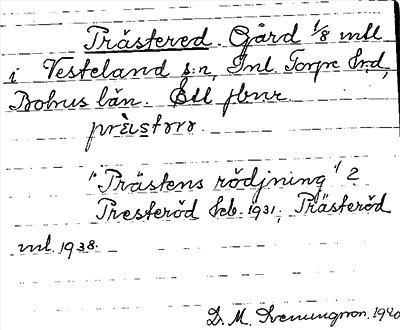 Prästered. Gård 1/8 mtl
i Vesteland s:n, Inl. Torpe hrd,
Bohus län.
"Prästens rödjning"?
Presteröd Jeb. 1931, Prästeröd
ml. 1938.
D. M. Svenungsson. 1940